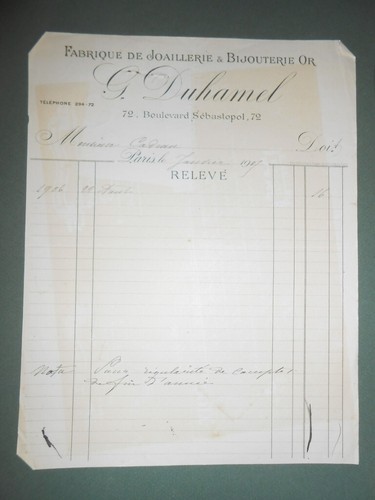 FABRIQUE DE JOAILLERIE & BIJOUTERIE OR
G. Duhamel
TÉLÉPHONE 294-72
72, Boulevard Sébastopol, 72
Monsieur Doit
Paris, le Janvier 1907
RELEVÉ
1906 22 Août 16
Nota Pour régularité de comptes
de fin d'année